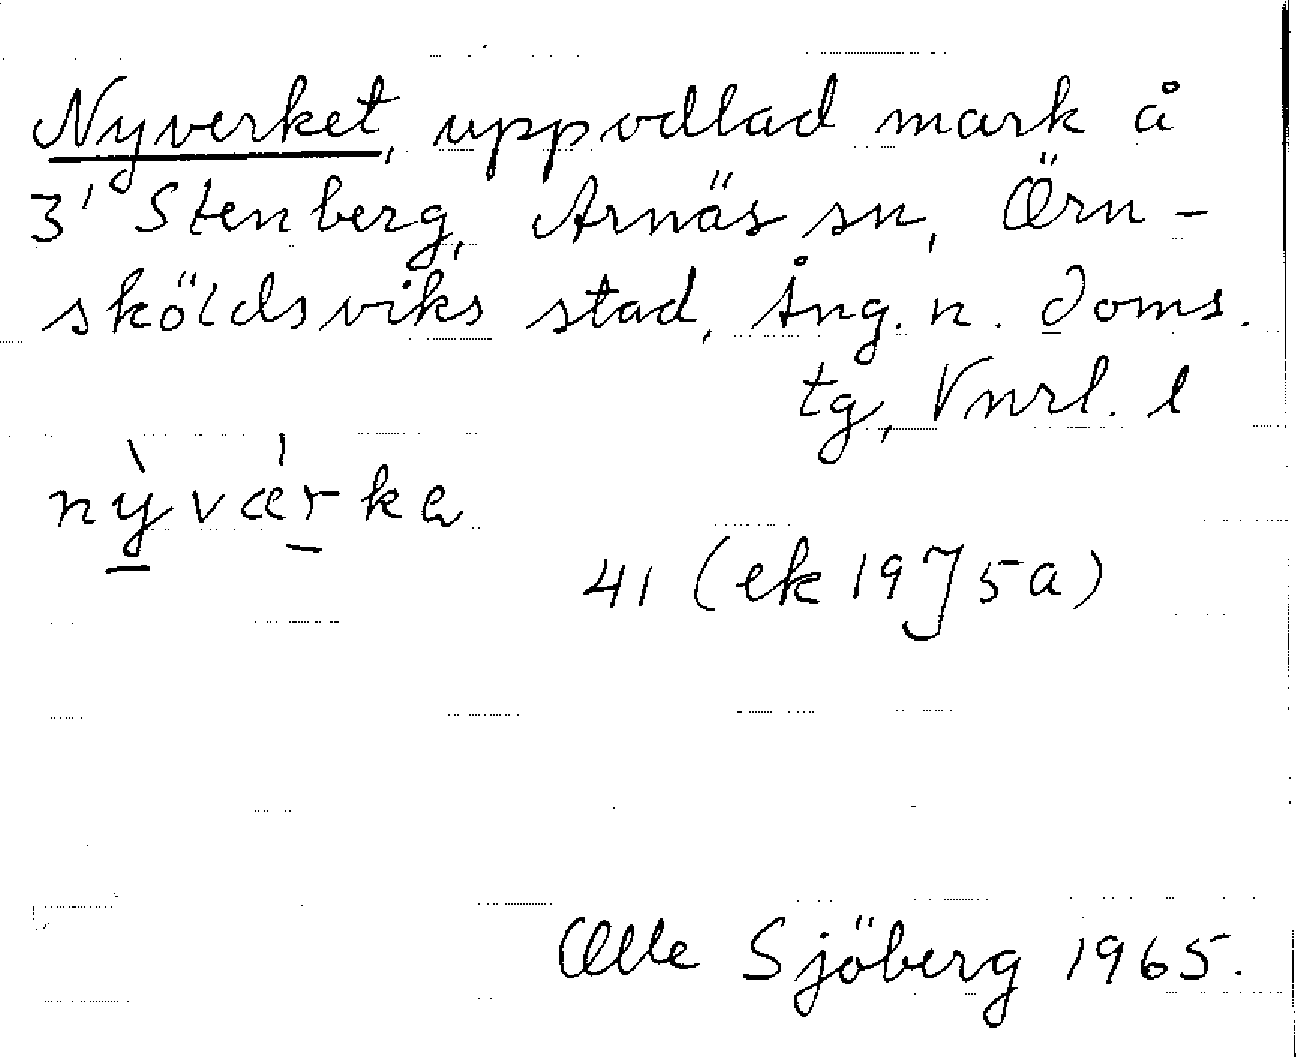 Nyverket, uppodlad mark å
3' Stenberg, Arnäs sn, Örn-
sköldsviks stad, Ång. n. doms.
tg, Vnrl. l
nỳvǽrkə
41 (ek 19J5a)
Olle Sjöberg 1965.